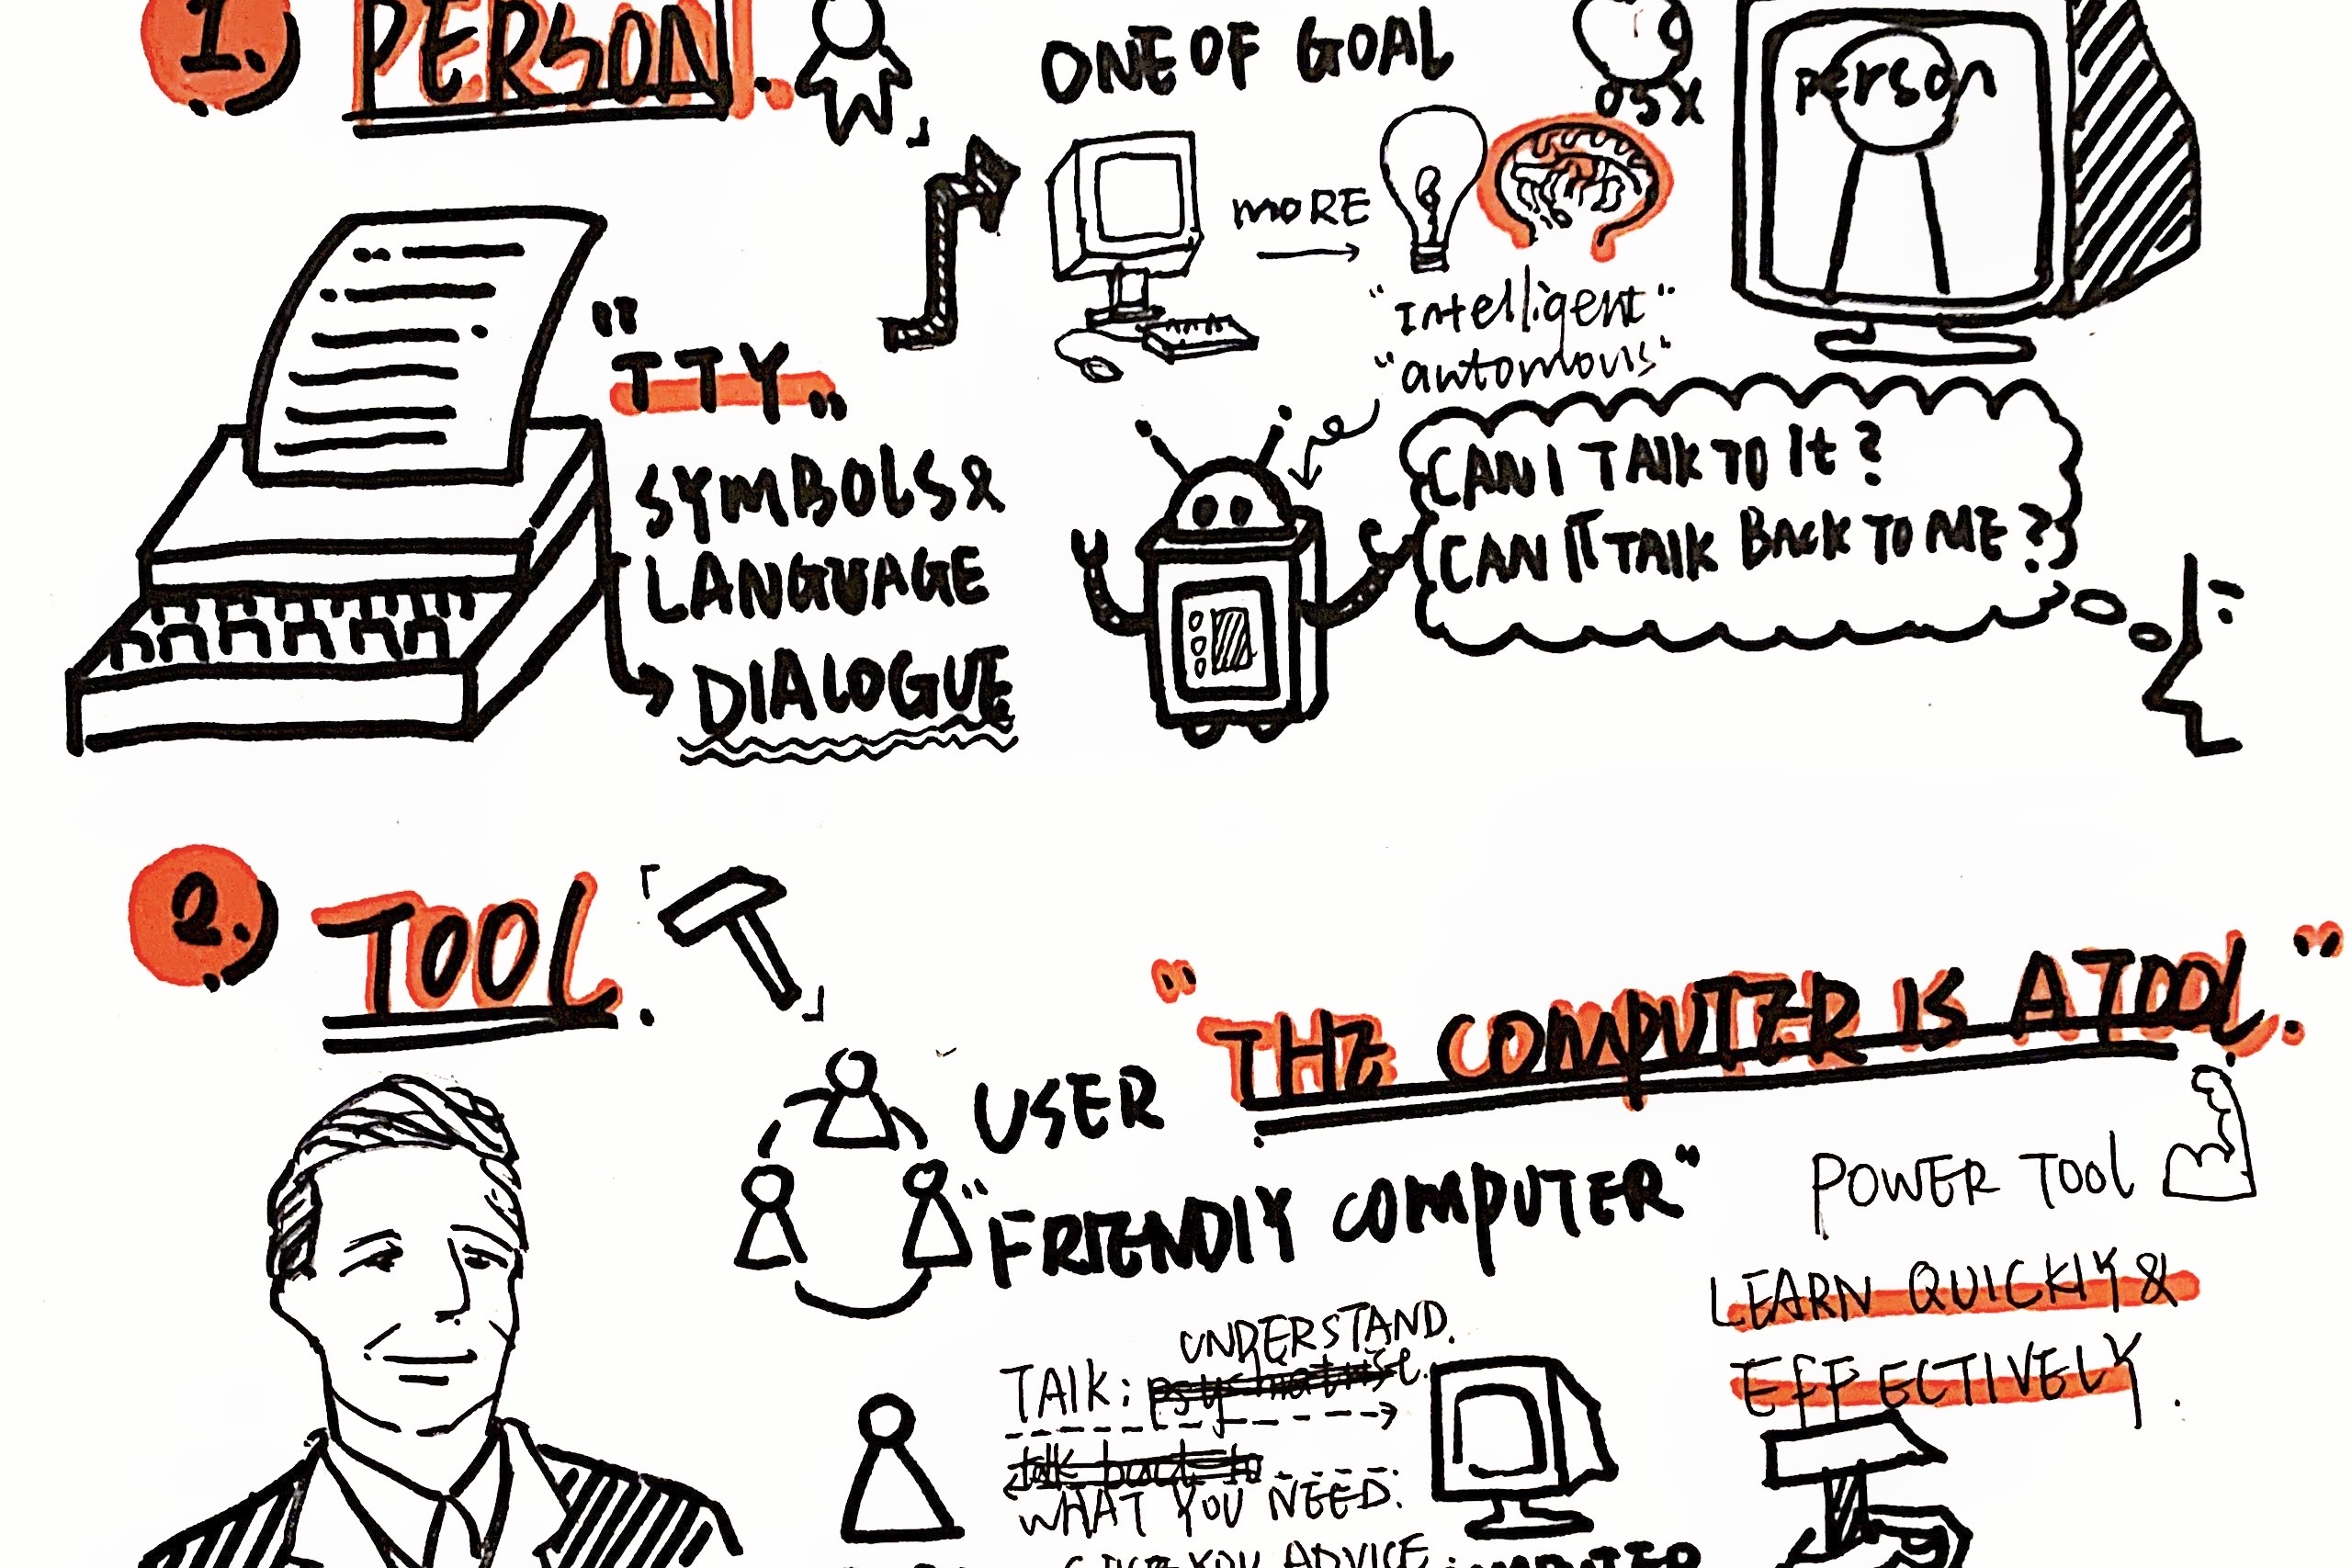 1. PERSON.
ONE OF GOAL
OSX
person
MORE
"Intelligent"
"automous"
"TTY"
SYMBOLS &
LANGUAGE
DIALOGUE
CAN I TALK TO It?
CAN IT TALK BACK TO ME?
2. TOOL.
"THE COMPUTER IS A TOOL."
USER
"FRIENDLY COMPUTER"
POWER TOOL
LEARN QUICKLY &
EFFECTIVELY.
UNDERSTAND.
TALK:
talk back to
WHAT YOU NEED.
GIVE YOU ADVICE